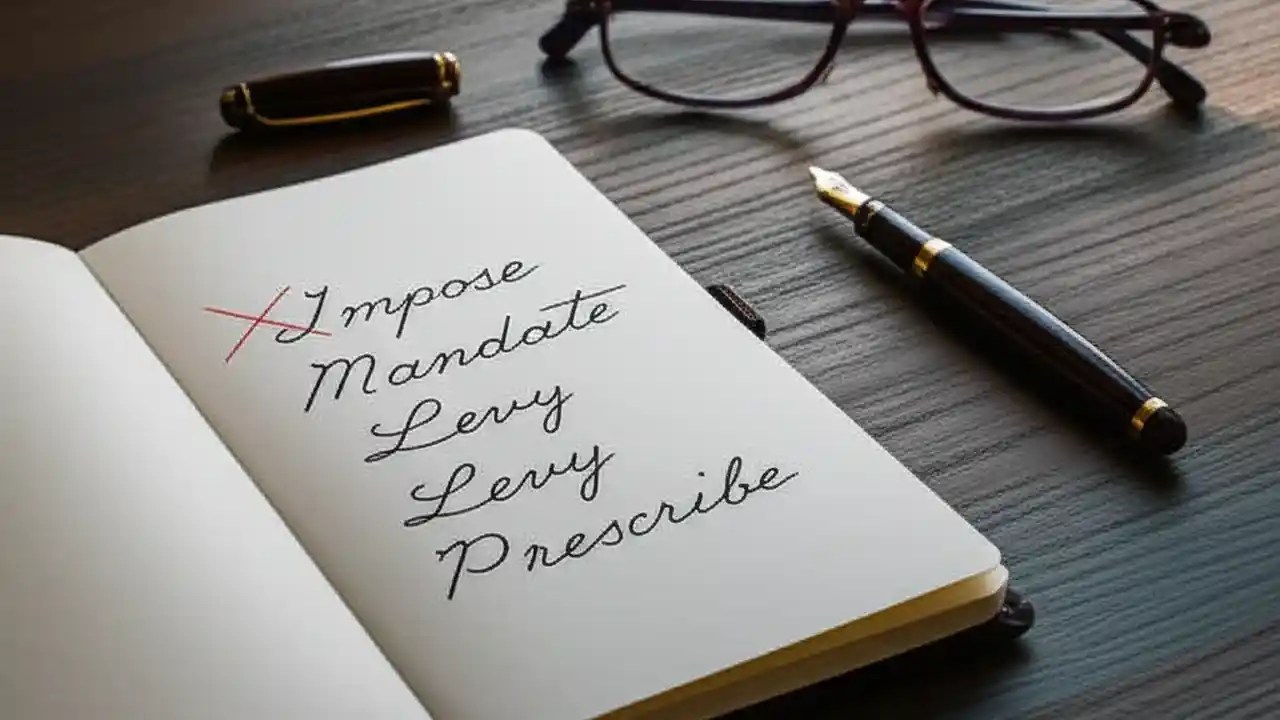 Impose
Mandate
Levy
Levy
Prescribe